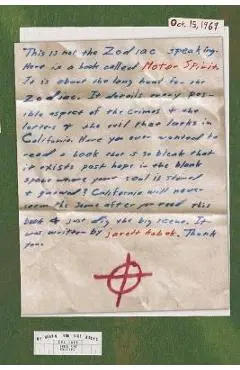 Oct. 15, 1969
This is not the Zodiac speaking.
Here is a book called Motor Spirit.
It is about the long hunt for the
Zodiac. It details every pos-
ible aspect of the crimes & the
letters & the evil that lurks in
California. Have you ever wanted to
read a book that is so bleak that
it exists post hope in the blank
space where your soul is
& gnawed? California will never
seem the same after you read this
book & just dig the big scene. It
was written by Jarett Kobek. Thank
you.